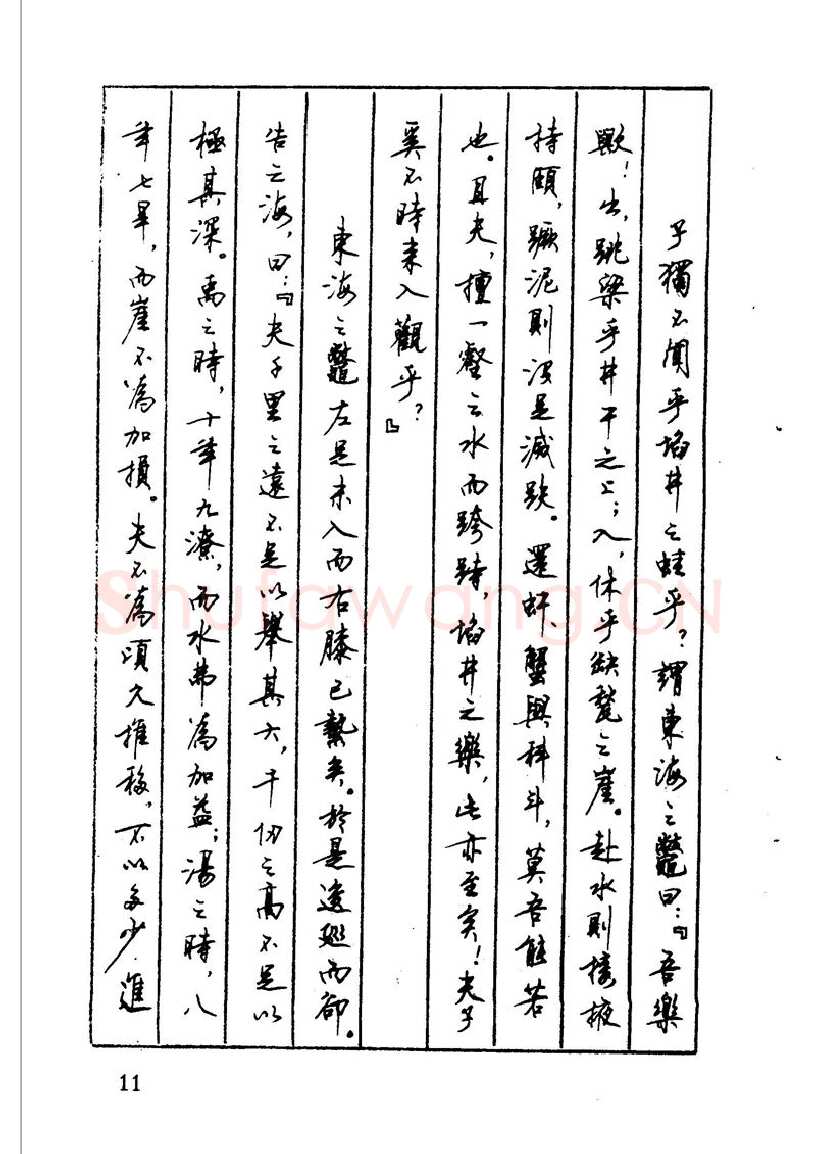 子獨不聞乎埳井之蛙乎？謂東海之鱉曰：『吾樂
歟！出，跳梁乎井干之上；入，休乎缺甃之崖。赴水則接掖
持頤，蹶泥則没足滅跗。還虷、蟹與科斗，莫吾能若
也。且夫，擅一壑之水而跨跱，埳井之樂，此亦至矣！夫子
奚不時来入觀乎？』
東海之鱉左足未入而右膝已縶矣。於是逡巡而卻。
告之海，曰：『夫千里之遠不足以舉其大，千仞之高不足以
極其深。禹之時，十年九潦，而水弗為加益；湯之時，八
年七旱，而崖不為加損。夫不為頃久推移，不以多少進
11
Shufawang.CN